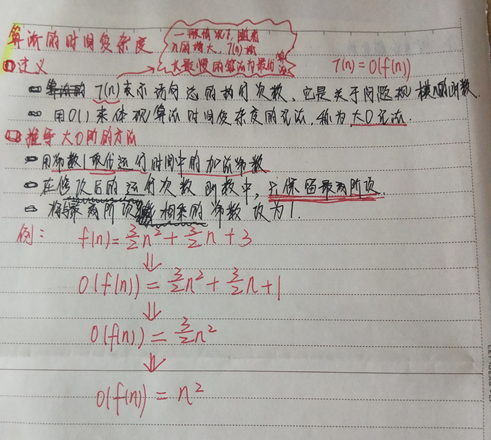 算法的时间复杂度
一般情况下，随着
n的增大，T(n)增
长最慢的算法为最优算法
①定义
T(n)=O(f(n))
T(n)表示语句总的执行次数，它是关于问题规模n的函数
用O()来体现算法时间复杂度的记法，称为大O记法.
②推导大O阶的方法
用常数1取代运行时间中的加法常数
在修改后的运行次数函数中，只保留最高阶项.
将最高阶项相乘的常数改为1.
例： f(n)=3/2n²+3/2n+3
⇓
O(f(n))=3/2n²+3/2n+1
⇓
O(f(n))=3/2n²
⇓
O(f(n))=n²